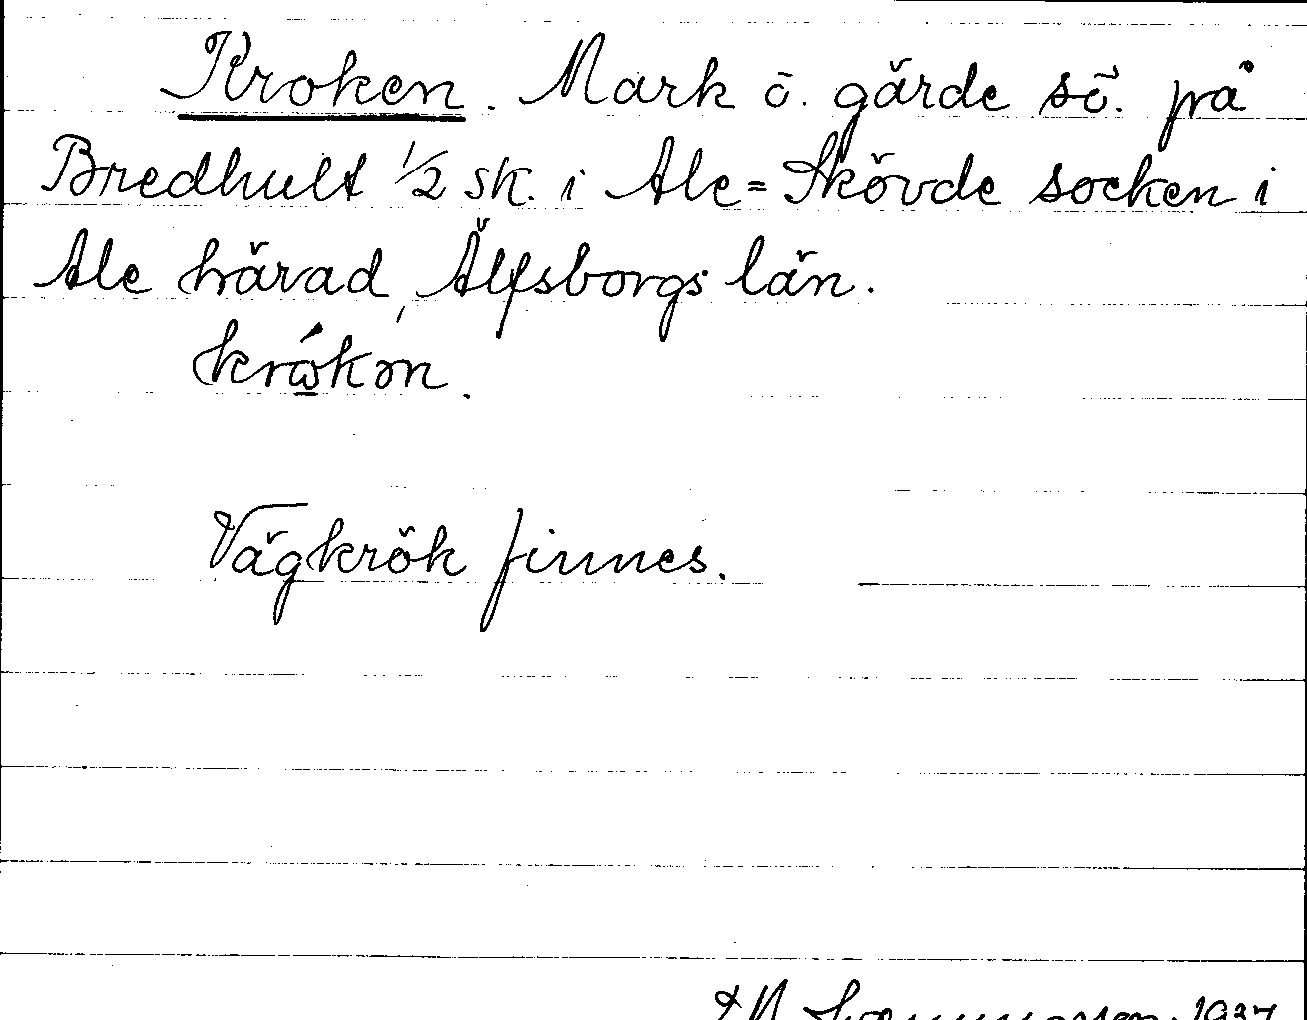 Kroken. Mark ö. gärde sö. på
Bredhult 1/2 sk. i Ale=Skövde socken i
Ale härad, Älfsborgs län.
Vägkrök finnes.
1937